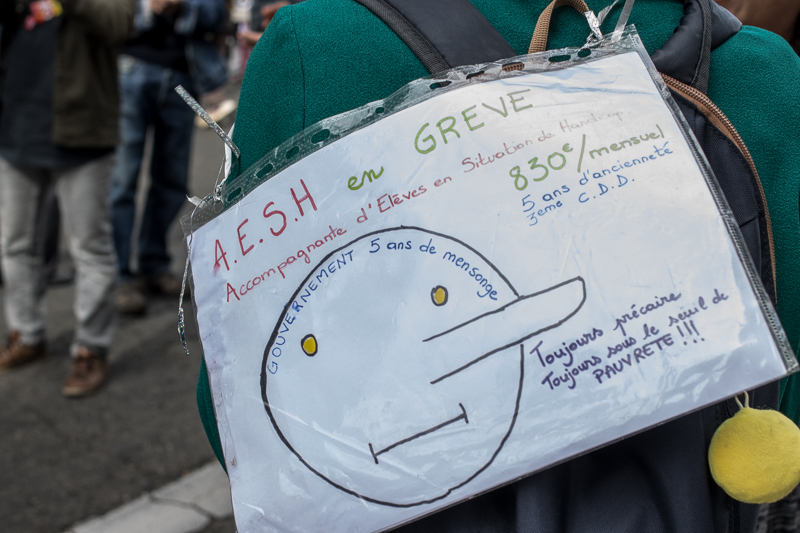 A.E.S.H en GREVE
Accompagnante d'Elèves en Situation de Handicap
830€/mensuel
5 ans d'ancienneté
3eme C.D.D.
GOUVERNEMENT 5 ans de mensonge
Toujours précaire
Toujours sous le seuil de
PAUVRETE!!!